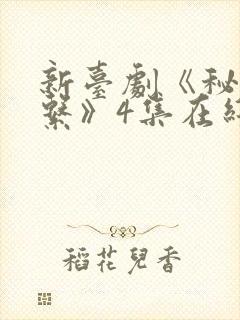 新臺劇《秘
繫》4集在
稻花兒香